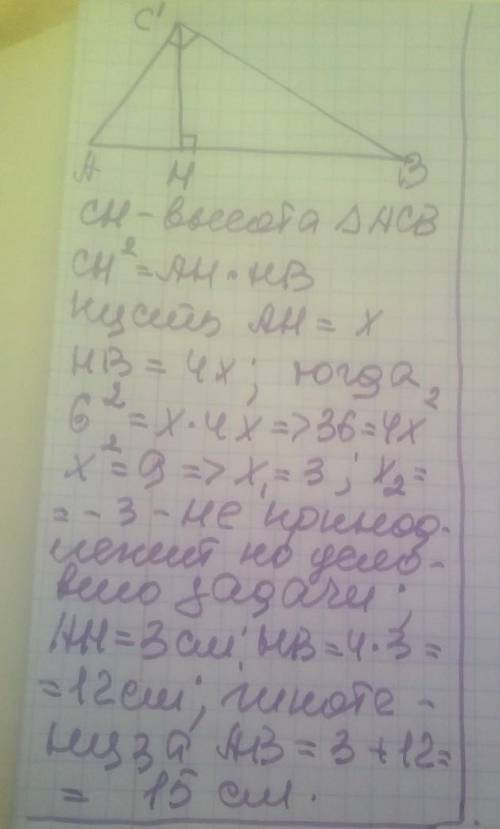 C
A H B
CH - высота △ACB
CH² = AH · HB
пусть AH = x
HB = 4x; тогда
6² = x · 4x => 36 = 4x²
x² = 9 => x₁ = 3; x₂ =
= -3 - не принад-
лежит по усло-
вию задачи;
AH = 3 см; HB = 4 · 3 =
= 12 см; гипоте-
нуза AB = 3 + 12 =
= 15 см.